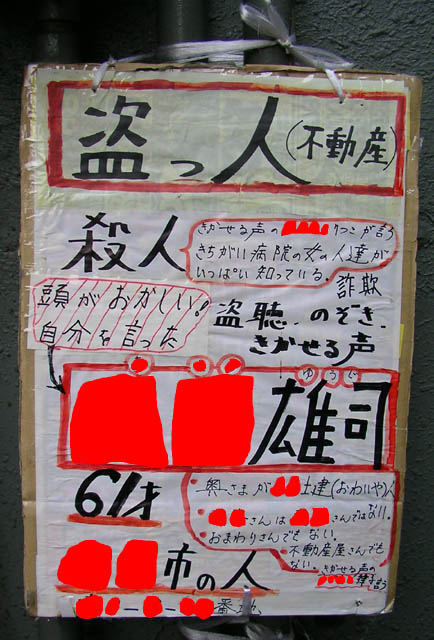 盗っ人(不動産)
殺人
きかせる声の りつこが言う
きちがい病院の女の人達が
いっぱい知っている.
詐欺
頭がおかしい!
自分を言った
盗聴、のぞき、
きかせる声
ゆうじ
雄司
61才
奥さまが 土建(おわいや)
さんは さんではない.
おまわりさんでもない.
不動産屋さんでも
ない.きかせる声の
言う
市の人
番地